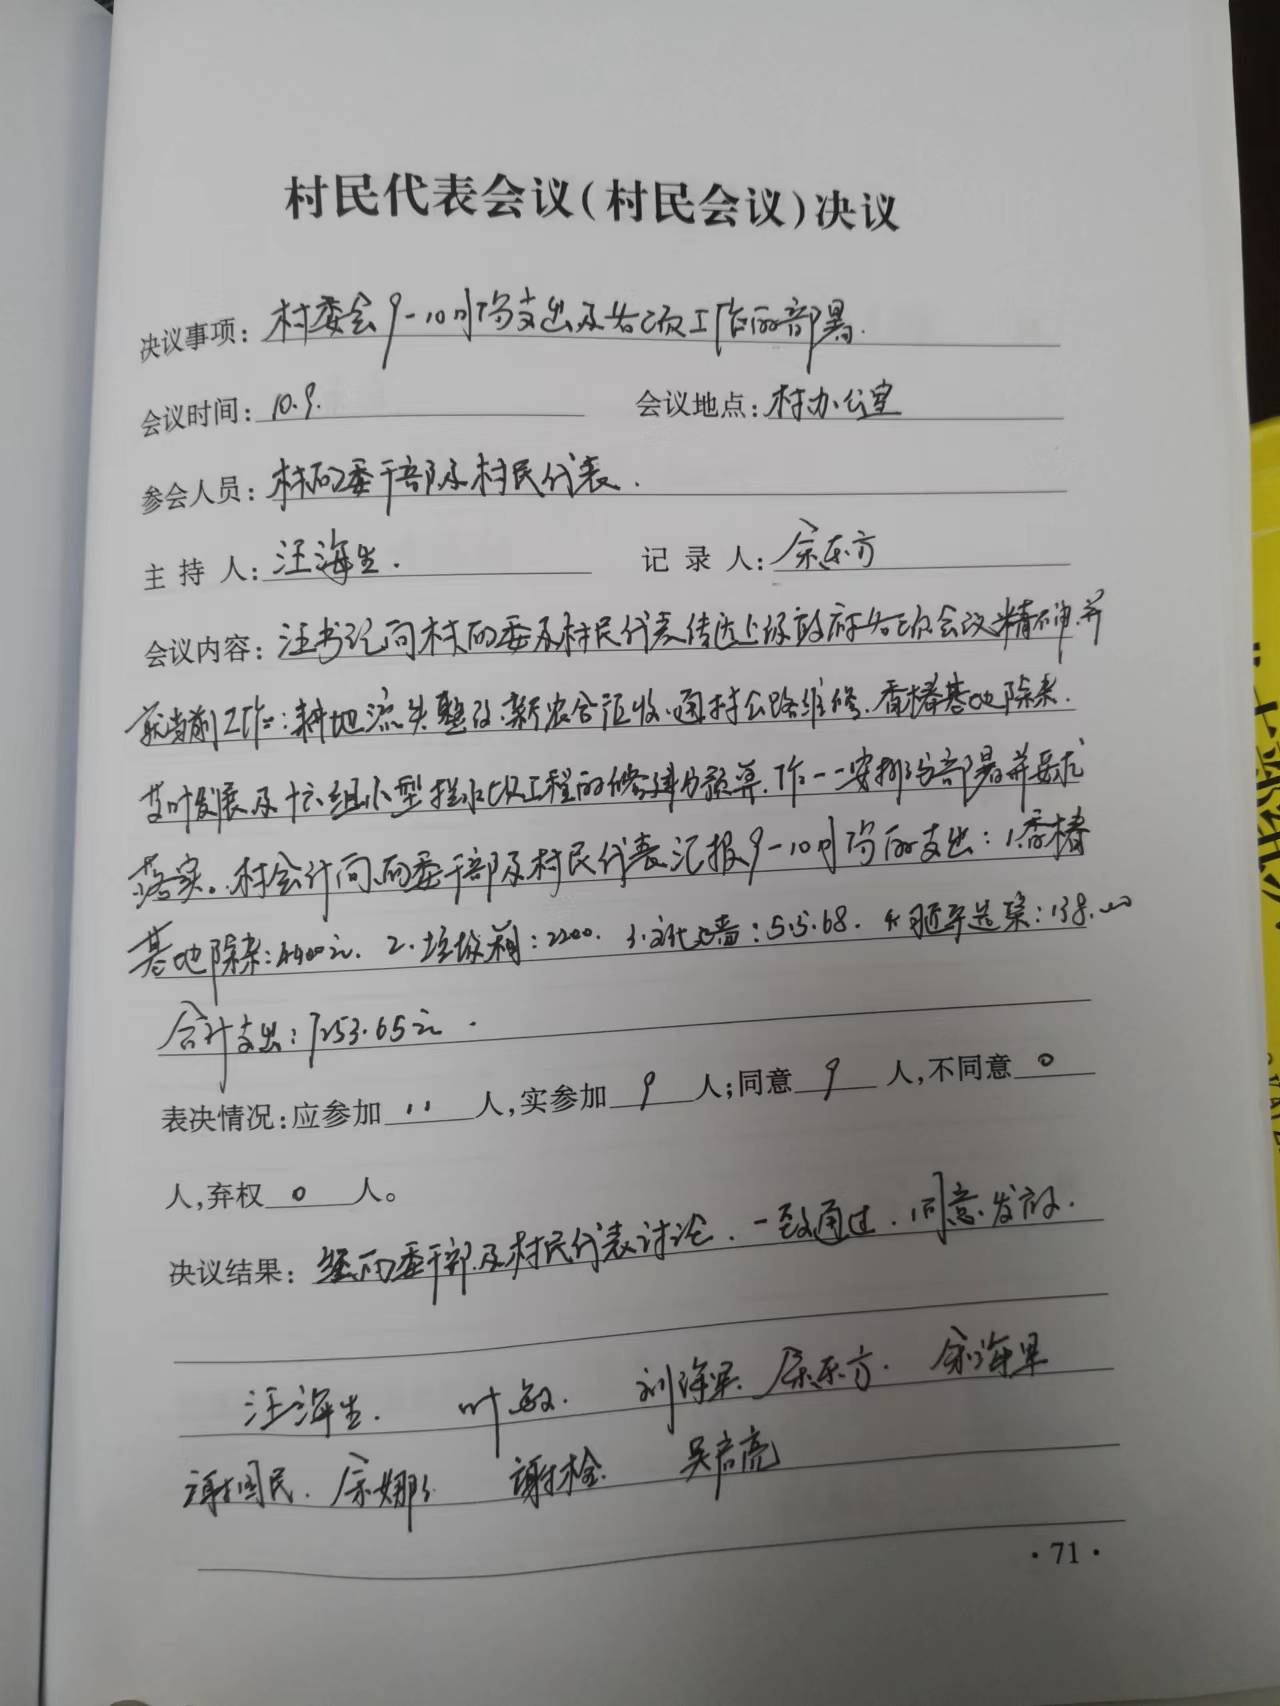 村民代表会议(村民会议)决议
决议事项: 村委会9-10月份支出及各项工作的部署.
会议时间: 10.9. 会议地点: 村办公室
参会人员: 村两委干部及村民代表.
主持人: 汪海生. 记录人: 余东方
会议内容: 汪书记向村两委及村民代表传达上级政府各项会议精神.并
就当前工作: 耕地流失整改.新农合征收.通村公路维修.香椿基地除杂.
艾叶发展及十六组小型拦水坝工程的修建与预算.作一一安排与部署并要求
落实。村会计向两委干部及村民代表汇报9-10月份的支出: 1.香椿
基地除杂:4400元. 2.垃圾 :2200. 3.文化墙:515.68. 4. :138.00
合计支出: 7253.65元.
表决情况:应参加 11 人,实参加 9 人;同意 9 人,不同意 0
人,弃权 0 人。
决议结果: 经两委干部及村民代表讨论.一致通过.同意发放.
汪海生. 叶敏. 刘海军. 余东方. 余海军
谢国民. 余娜 谢栓. 吴启亮
·71·